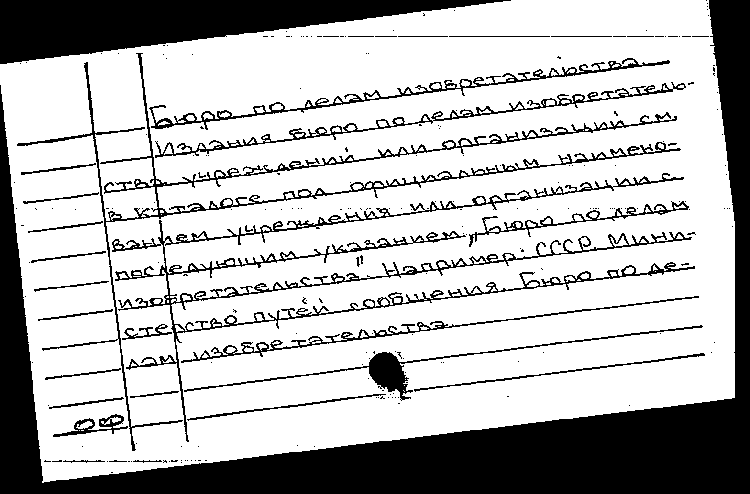 Бюро по делам изобретательства.
Издания бюро по делам изобретатель-
ства учреждений или организаций см.
в каталоге под официальным наимено-
ванием учреждения или организации с
последующим указанием „Бюро по делам
изобретательства". Например: СССР. Мини-
стерство путей сообщения. Бюро по де-
лам изобретательства.
ОФ